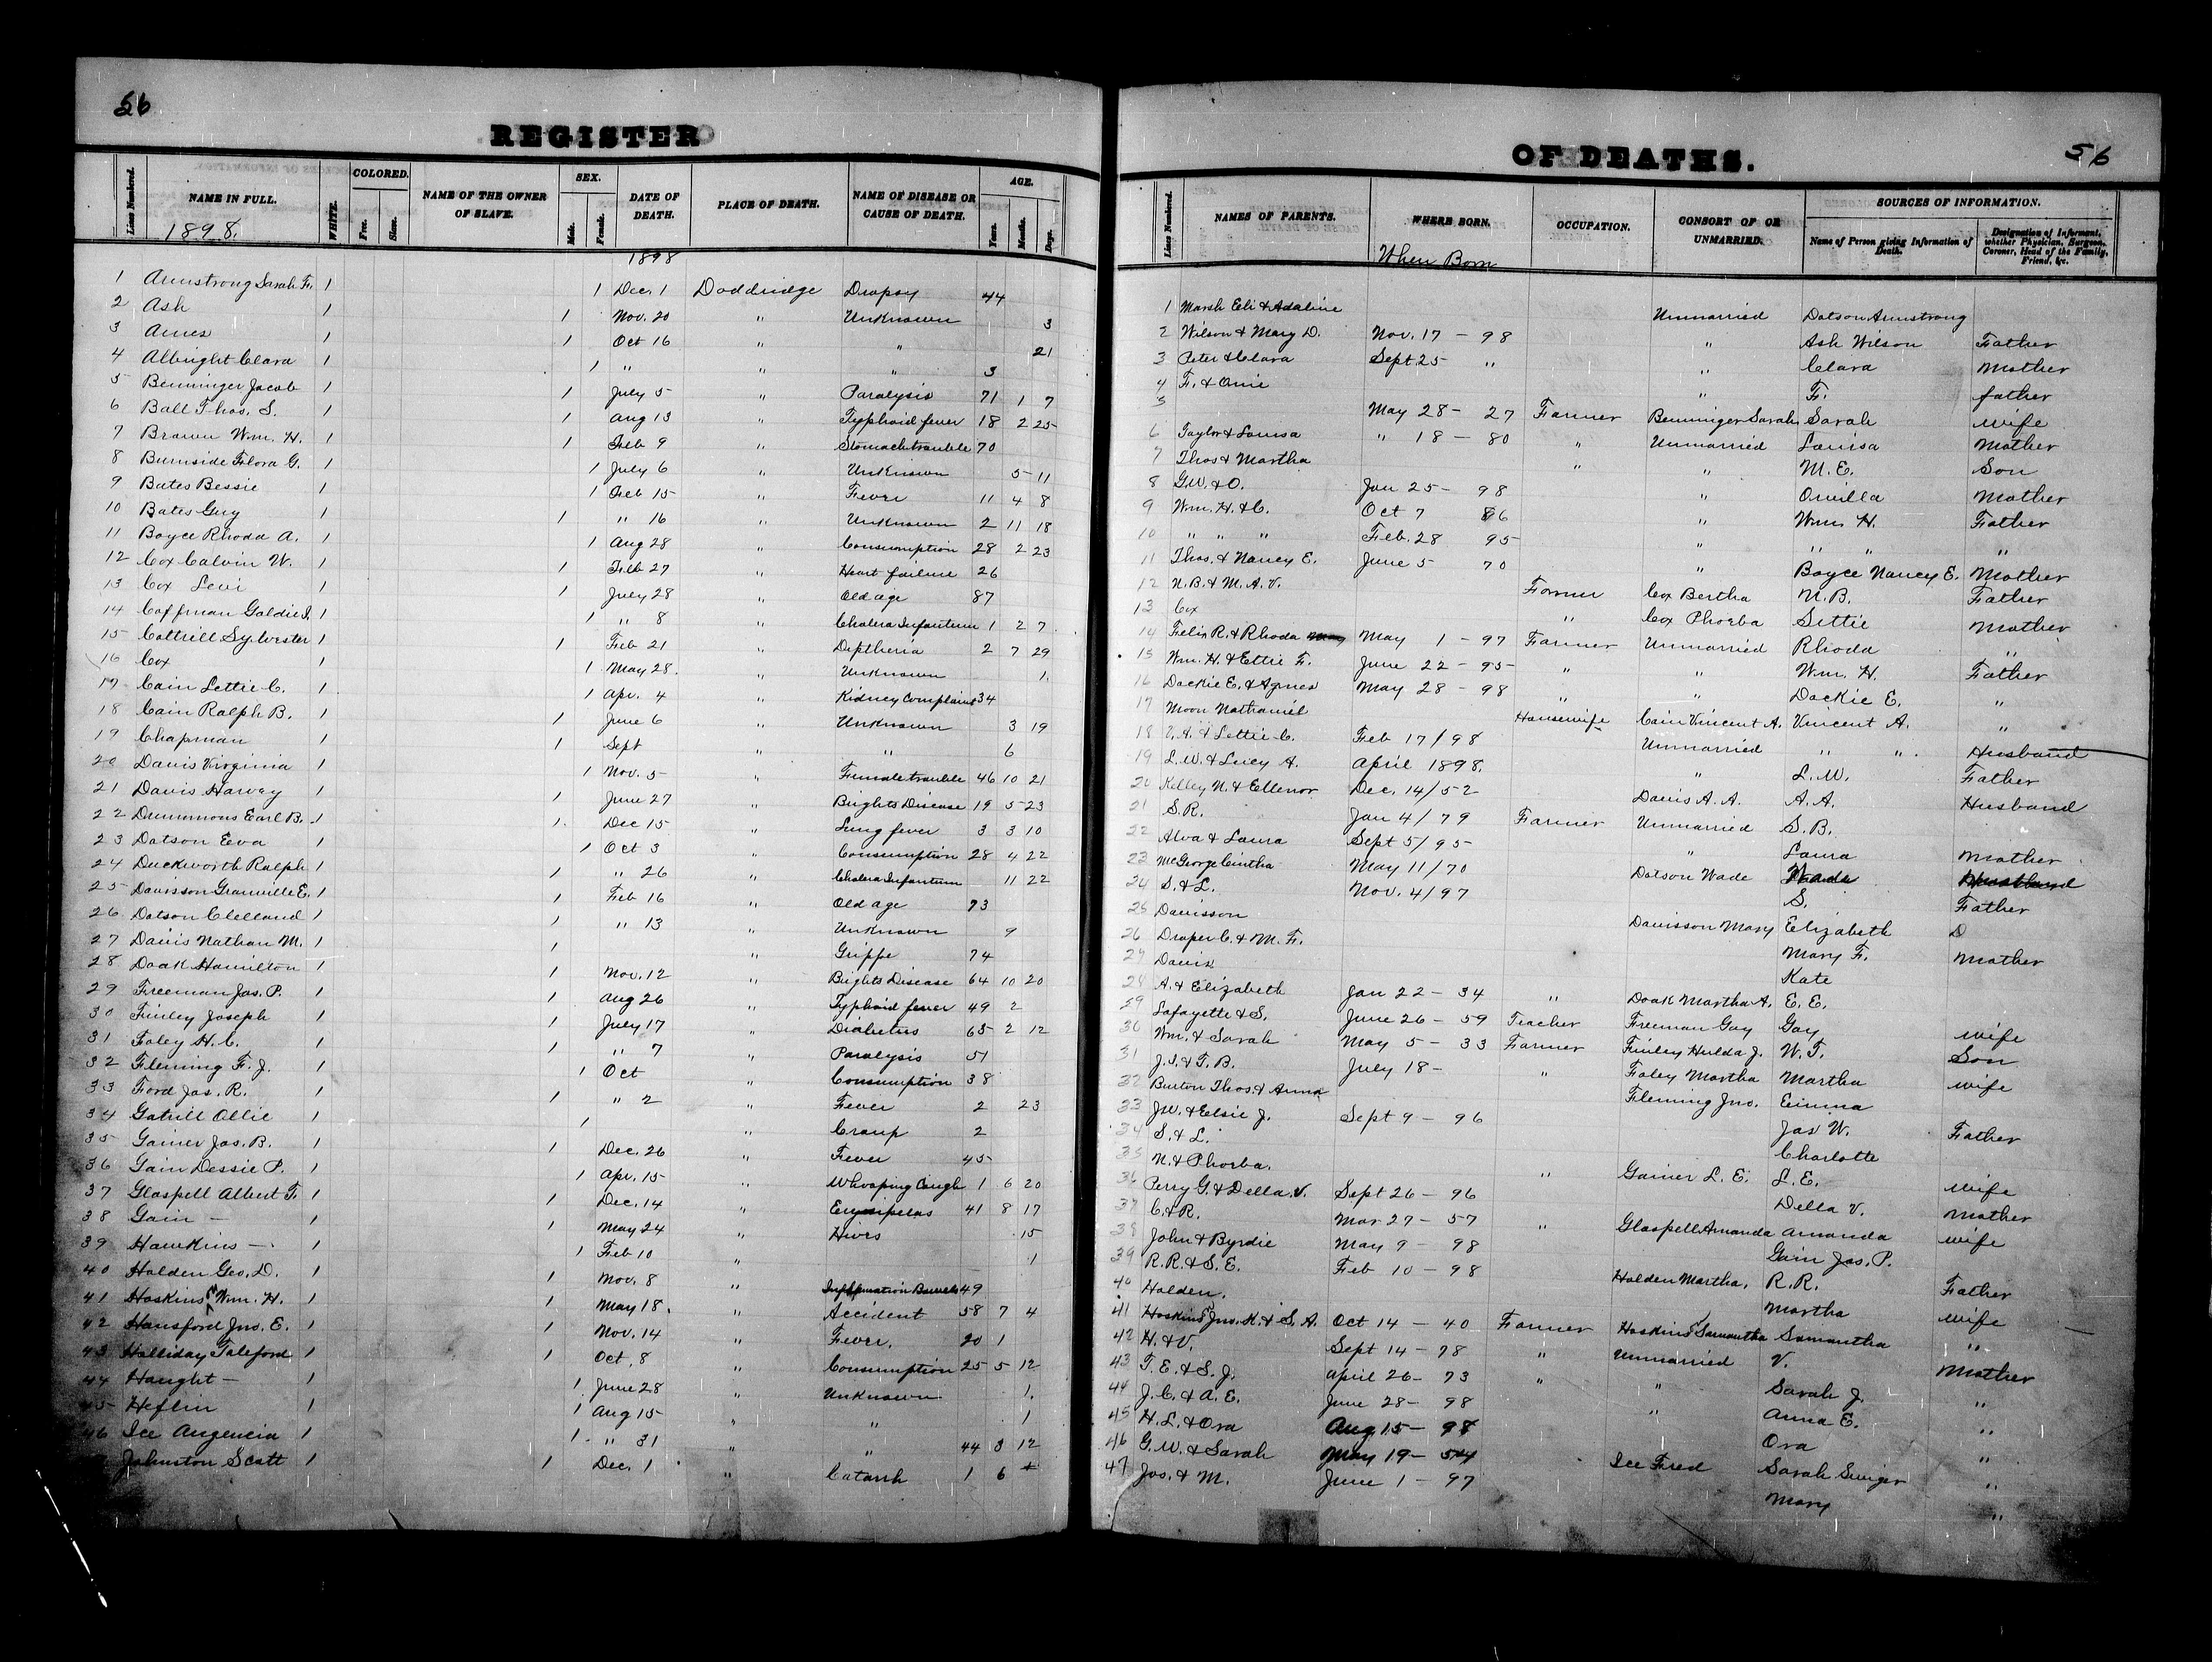 56
REGISTER
Lines Numbered. NAME IN FULL. WHITE. COLORED. Free. Slave. NAME OF THE OWNER OF SLAVE. SEX. Male. Female. DATE OF DEATH. PLACE OF DEATH. NAME OF DISEASE OR CAUSE OF DEATH. AGE. Years. Months. Days.
1898.
1898
1 Armstrong Sarah F. 1 1 Dec. 1 Doddridge Dropsy 44
2 Ash 1 1 Nov. 20 " Unknown 3
3 Ames 1 1 Oct 16 " " 21
4 Albright Clara 1 1 " " " 3
5 Benninger Jacob 1 1 July 5 " Paralysis 71 1 7
6 Ball Thos. S. 1 1 Aug 13 " Typhoid fever 18 2 25
7 Brown Wm. H. 1 1 Feb 9 " Stomach trouble 70
8 Burnside Flora G. 1 1 July 6 " Unknown 5 11
9 Bates Bessie 1 1 Feb 15 " Fever 11 4 8
10 Bates Guy 1 1 " 16 " Unknown 2 11 18
11 Boyce Rhoda A. 1 1 Aug 28 " Consumption 28 2 23
12 Cox Calvin W. 1 1 Feb 27 " Heart failure 26
13 Cox Levi 1 1 July 28 " Old age 87
14 Coffman Goldie I. 1 1 " 8 " Cholera Infantum 1 2 7
15 Cottrill Sylvester 1 1 Feb 21 " Diptheria 2 7 29
16 Cox 1 1 May 28. " Unknown 1
17 Cain Lettie C. 1 1 Apr. 4 " Kidney Complaint 34
18 Cain Ralph B. 1 1 June 6 " Unknown 3 19
19 Chapman 1 1 Sept " " 6
20 Davis Virginia 1 1 Nov. 5 " Female trouble 46 10 21
21 Davis Harvey 1 1 June 27 " Brights Disease 19 5 23
22 Dummons Earl B. 1 1 Dec 15 " Lung fever 3 3 10
23 Dotson Eva 1 1 Oct 3 " Consumption 28 4 22
24 Duckworth Ralph 1 1 " 26 " Cholera Infantum 11 22
25 Davisson Granville E. 1 1 Feb 16 " Old age 73
26 Dotson Clelland 1 1 " 13 " Unknown 9
27 Davis Nathan M. 1 1 " Grippe 74
28 Doak Hamilton 1 1 Nov. 12 " Brights Disease 64 10 20
29 Freeman Jas. P. 1 1 Aug 26 " Typhoid fever 49 2
30 Finley Joseph 1 1 July 17 " Diabetus 65 2 12
31 Foley H. C. 1 1 " 7 " Paralysis 51
32 Fleming F. J. 1 1 Oct " Consumption 38
33 Ford Jas. R. 1 1 " 2 " Fever 2 23
34 Gatrill Ollie 1 1 " Croup 2
35 Gainer Jas. B. 1 1 Dec. 26 " Fever 45
36 Gain Dessie P. 1 1 Apr. 15 " Whooping Cough 1 6 20
37 Glaspell Albert F. 1 1 Dec. 14 " Erysipelas 41 8 17
38 Gain — 1 1 May 24 " Hives 15
39 Hawkins — 1 1 Feb 10 " 1
40 Holden Geo. D. 1 1 Nov. 8 " Inflamation Bowels 49
41 Hoskins Wm. H. 1 1 May 18. " Accident 58 7 4
42 Hansford Jno. E. 1 1 Nov. 14 " Fever. 20 1
43 Halliday Taleford 1 1 Oct. 8 " Consumption 25 5 12
44 Haught — 1 1 June 28 " Unknown 1
45 Heflin 1 1 Aug 15 " " 1
46 Ice Angencia 1 1 " 31 " " 44 3 12
Johnston Scott 1 1 Dec. 1 " Catarrh 1 6
56
OF DEATHS.
Lines Numbered. NAMES OF PARENTS. WHERE BORN. OCCUPATION. CONSORT OF OR UNMARRIED. SOURCES OF INFORMATION. Name of Person giving Information of Death. Designation of Informant, whether Physician, Surgeon, Coroner, Head of the Family, Friend, &c.
When Born
1 Marsh Eli & Adaline Unmarried Dotson Armstrong
2 Wilson & Mary D. Nov. 17 - 98 " Ash Wilson Father
3 Peter & Clara Sept 25 " " Clara Mother
4 F. & Omie " F. father
5 May 28 - 27 Farmer Benninger Sarah Sarah wife
6 Taylor & Louisa " 18 - 80 " Unmarried Louisa Mother
7 Thos & Martha " " M. E. Son
8 G.W. & O. Jan 25 - 98 " Orvilla Mother
9 Wm. H. & C. Oct 7 86 " Wm. H. Father
10 " " " Feb. 28 95 " " " "
11 Thos. & Nancy E. June 5 70 " Boyce Nancy E. Mother
12 N. B. & M. A. V. Farmer Cox Bertha N. B. Father
13 Cox " Cox Phoeba Settie Mother
14 Felix R. & Rhoda May 1 - 97 Farmer Unmarried Rhoda "
15 Wm. H. & Ettie F. June 22 - 95 " " Wm. H. Father
16 Dackie E. & Agnes May 28 - 98 " " Dackie E. "
17 Moon Nathaniel Housewife Cain Vincent A. Vincent A. "
18 V. A. & Lettie C. Feb 17/98 Unmarried " " Husband
19 L. W. & Lucy A. April 1898. " L. W. Father
20 Kelley N. & Ellenor Dec. 14/52 Davis A. A. A. A. Husband
21 S. R. Jan 4/79 Farmer Unmarried S. B.
22 Alva & Laura Sept 5/95 " Laura Mother
23 McGeorge Cintha May 11/70 Dotson Wade Wade Husband
24 S. & L. Nov. 4/97 S. Father
25 Davisson Davisson Mary Elizabeth D
26 Draper C. & M. F. Mary F. Mother
27 Davis Kate
28 A. & Elizabeth Jan 22 - 34 " Doak Martha A. E. E.
29 Lafayette & S. June 26 - 59 Teacher Freeman Gay Gay wife
30 Wm. & Sarah May 5 - 33 Farmer Finley Hulda J. W. T. Son
31 J. S. & T. B. July 18 - " Foley Martha Martha wife
32 Burton Thos. & Anna Fleming Jno. Emma
33 J.W. & Elsie J. Sept 9 - 96 Jas W. Father
34 S. & L. Charlotte
35 N. & Phoeba. " Gainer L. E. L. E. wife
36 Perry G. & Della V. Sept 26 - 96 Della V. Mother
37 C. & R. Mar 27 - 57 " Glaspell Amanda Amanda wife
38 John & Byrdie May 9 - 98 Gain Jas. P.
39 R. R. & S. E. Feb 10 - 98 R. R. Father
40 Holden. Holden Martha. Martha wife
41 Hoskins Jno. K. & S. A. Oct 14 - 40 Farmer Hoskins Samantha Samantha "
42 H. & V. Sept 14 - 78 " Unmarried V. Mother
43 T. E. & S. J. April 26 - 73 " " Sarah J. "
44 J. C. & A. E. June 28 - 98 " Anna E. "
45 H. L. & Ora Aug 15 - 98 Ora "
46 G. W. & Sarah May 19 - 54 Ice Fred Sarah "
47 Jos. & M. June 1 - 97 Mary "